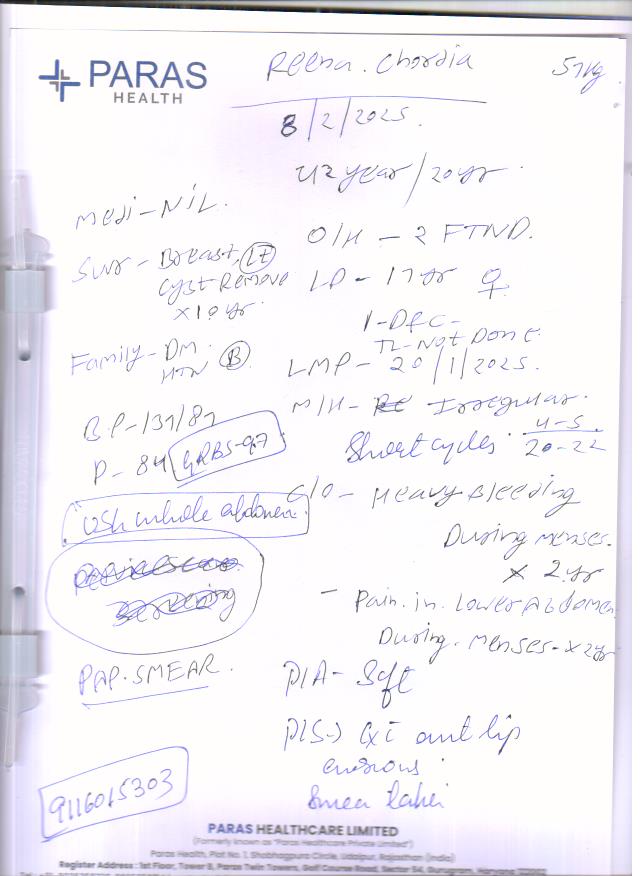 PARAS
HEALTH
Reena. Chordia
57kg
8/2/2025.
42 year/20yr.
Medi-NIL.
O/H - 2 FTND.
Surr - Breast, Lt
Cyst Remove
x10yr.
LD - 17yr ♀
1-D&C-
TL-Not Done.
Family- DM.
HTN B
LMP - 20/1/2025.
M/H- Irregular.
Short cycles 4-5
20-22
B.P-137/87
P-84
GRBS-97
USh whole abdomen
C/O - Heavy Bleeding
During menses.
x 2yr
- Pain. in. Lower Abdomen
During. menses-x2yr
PAP.SMEAR.
P/A- Soft
P/S-) Cx ant lip
erosions
Smea
9116015303
PARAS HEALTHCARE LIMITED
(Formerly known as "Paras Healthcare Private Limited")
Paras Health, Plot No. 1, Shobhagpura Circle, Udaipur, Rajasthan (India)
Register Address : 1st Floor, Tower B, Paras Twin Towers, Golf Course Road, Sector 54, Gurugram, Haryana